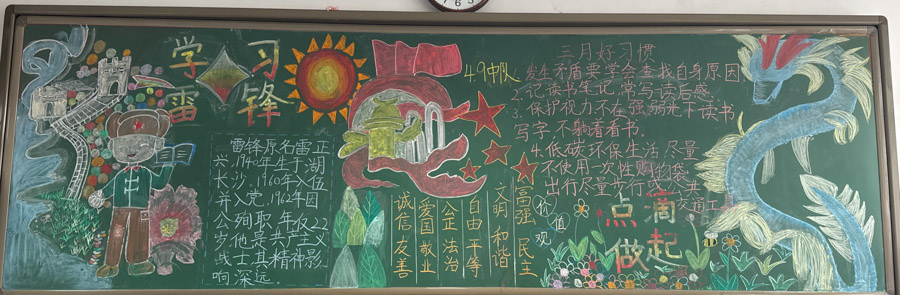 学习
雷锋
雷锋原名雷正
兴.1940年生于湖
长沙.1960年入伍
并入党.1962年因
公殉职年仅22
岁他是共产主义
战士其精神影
响深远.
49中队
诚信 友善
爱国 敬业
公正 法治
自由 平等
文明 和谐
富强 民主
价值观
三月好习惯
发生矛盾要学会查找自身原因
2.记读书笔记,常写读后感.
3.保护视力不在强弱光下读书
写字 不躺着看书.
4.低碳环保生活 尽量
不使用一次性购物袋
出行尽量步行或公共
交通工具
点滴
做起